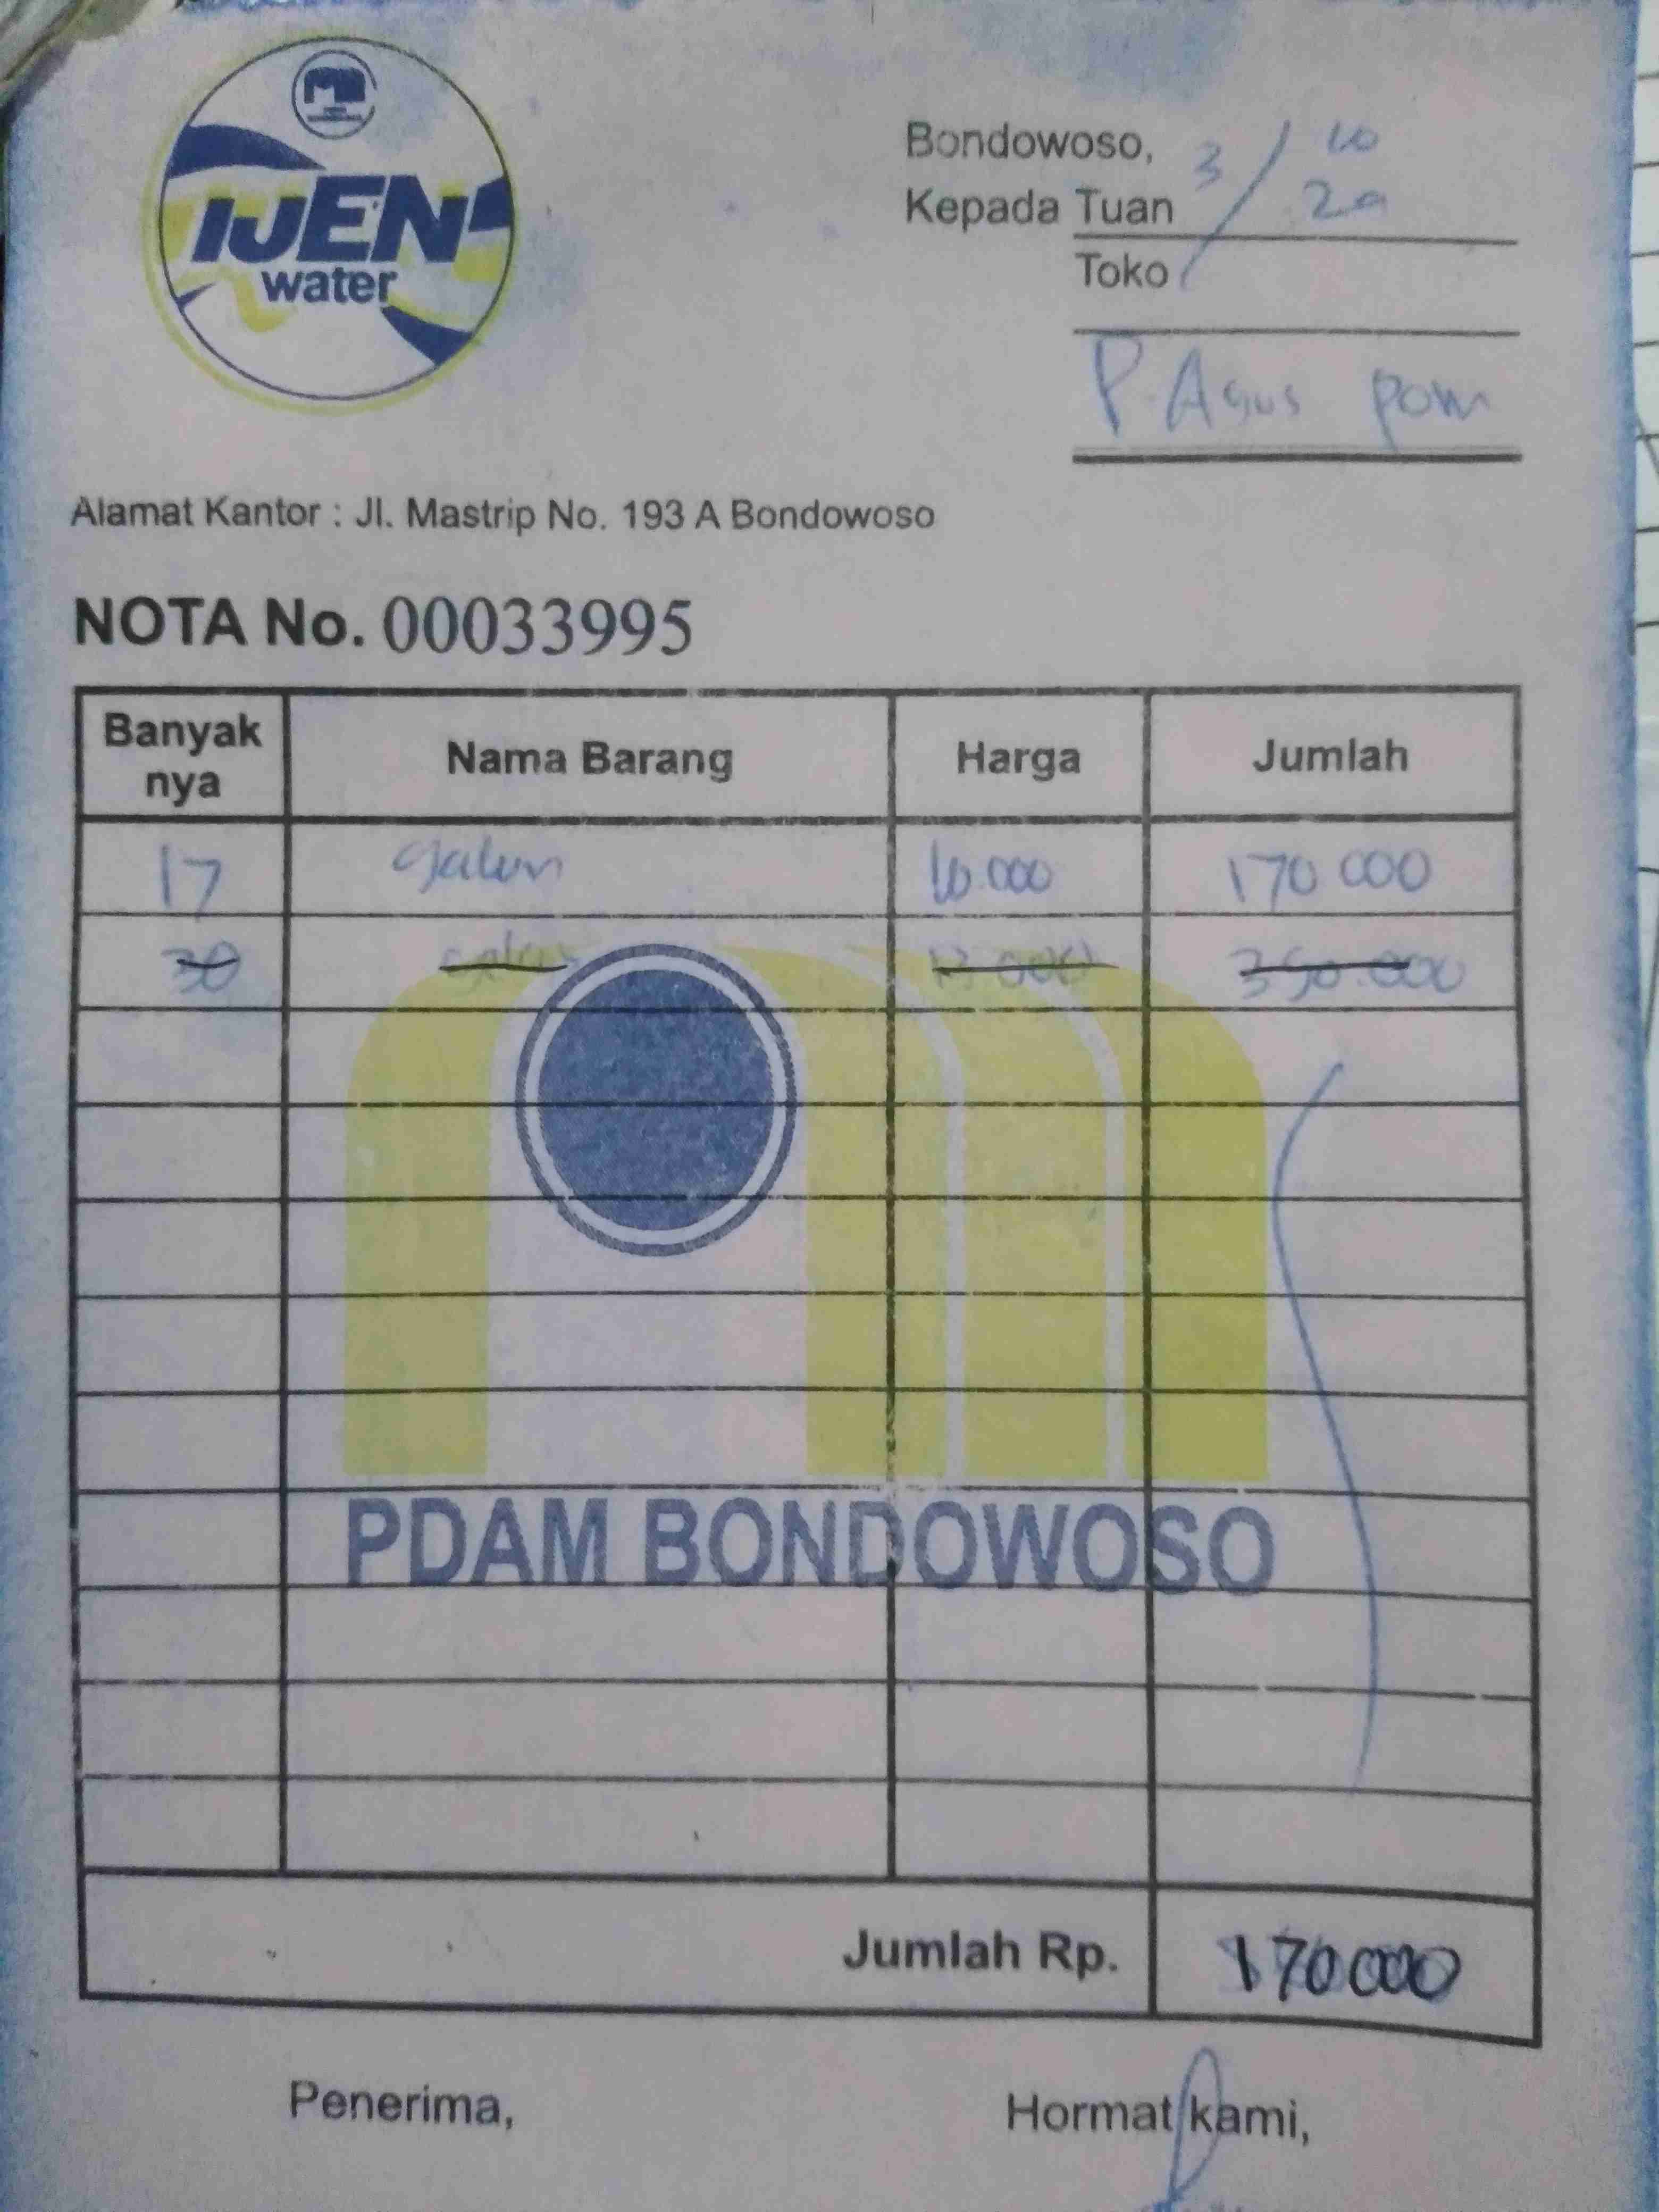 IJEN
water
Bondowoso, 3/10
Kepada Tuan 20
Toko
P. Agus pom
Alamat Kantor : Jl. Mastrip No. 193 A Bondowoso
NOTA No. 00033995
Banyak nya Nama Barang Harga Jumlah
17 galon 10.000 170 000
30 galon 13.000 390.000
PDAM BONDOWOSO
Jumlah Rp. 170 000
Penerima, Hormat kami,